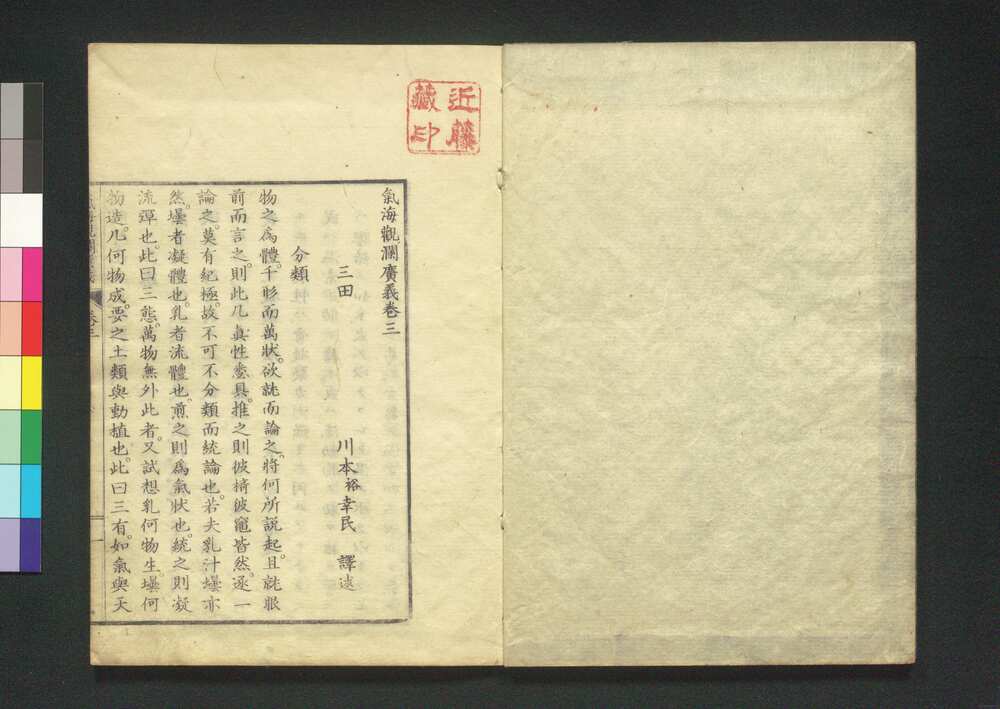 近藤
藏印
氣海觀瀾廣義卷三
三田 川本裕幸民 譯述
分類
物之爲體。千形而萬狀。欲就而論之。將何所説起。且就眼
前而言之。則此几眞性悉具。推之則彼椅彼竈皆然。逐一
論之。莫有紀極。故不可不分類而統論也。若夫乳汁壜亦
然。壜者凝體也。乳者流體也。煎之則爲氣狀也。統之則凝
流彈也。此曰三態。萬物無外此者。又試想乳何物生。壜何
物造。几何物成。要之土類與動植也。此曰三有。如氣與天